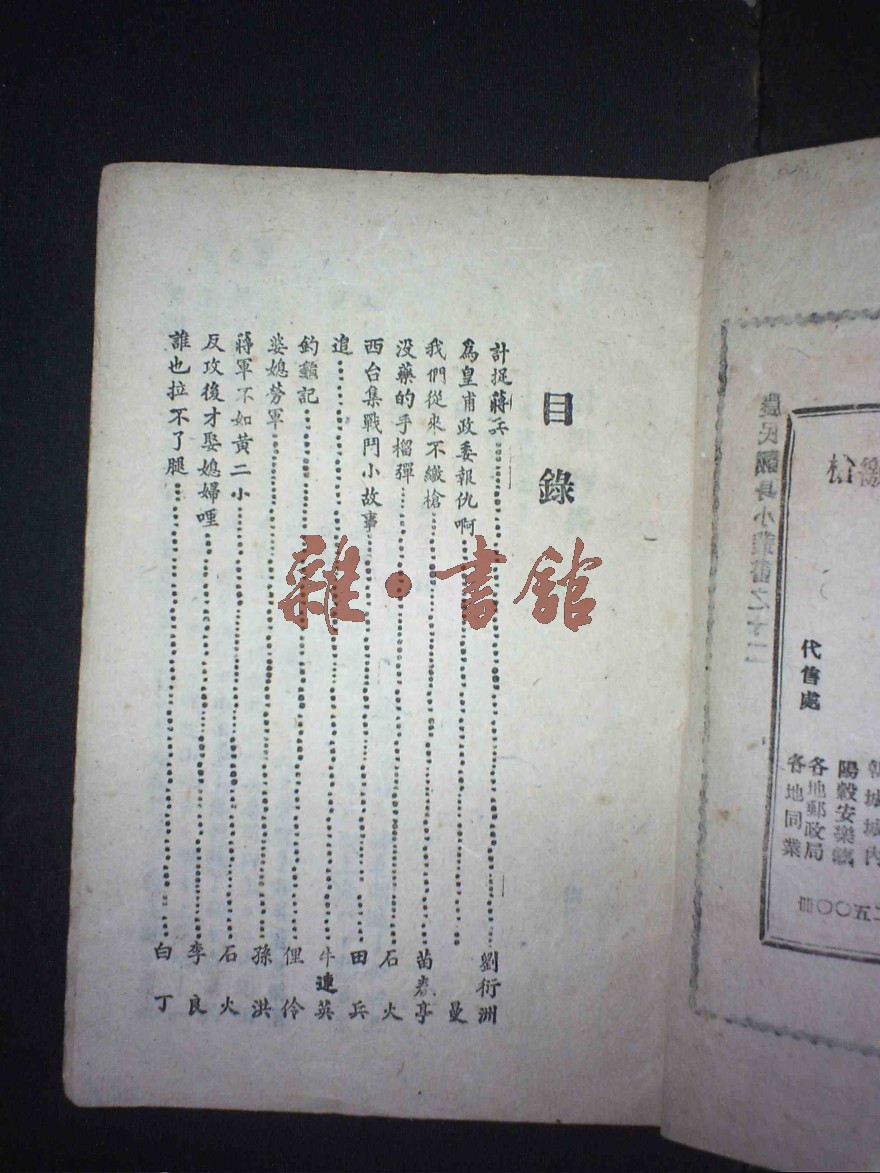 目錄
計捉蔣兵 劉衍洲
為皇甫政委報仇啊 曼
我們從來不繳槍 苗春亭
没藥的手榴彈 石火
西台集戰鬥小故事 田兵
追 牛連英
釣龜記 俚伶
婆媳勞軍 孫洪
蔣軍不如黃二小 石火
反攻後才娶媳婦哩 李良
誰也拉不了腿 白丁
代售處
朝城城內
陽穀安樂鎮
各地郵政局
各地同業
二五〇〇冊
雜·書館